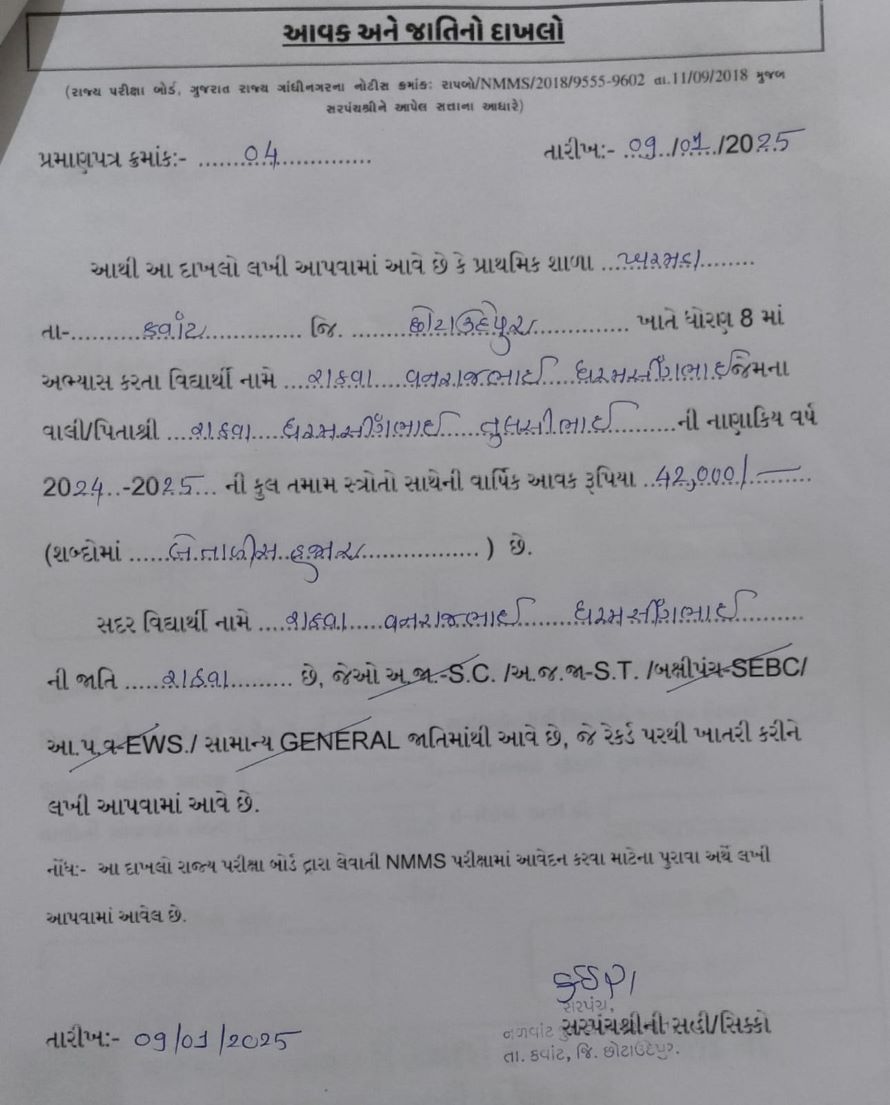 આવક અને જાતિનો દાખલો
(રાજ્ય પરીક્ષા બોર્ડ, ગુજરાત રાજ્ય ગાંધીનગરના નોટીસ ક્રમાંક: રાપબો/NMMS/2018/9555-9602 તા.11/09/2018 મુજબ
સરપંચશ્રીને આપેલ સત્તાના આધારે)
પ્રમાણપત્ર ક્રમાંક:- .......04................ તારીખ:- 09../01../2025
આથી આ દાખલો લખી આપવામાં આવે છે કે પ્રાથમિક શાળા ...ખરમડા........
તા-...........કવાંટ............... જિ. ........છોટાઉદેપુર.............. ખાતે ધોરણ 8 માં
અભ્યાસ કરતા વિદ્યાર્થી નામે ...રાઠવા....વનરાજભાઈ....ધરમસીંગભાઈ જેમના
વાલી/પિતાશ્રી ...રાઠવા....ધરમસીંગભાઈ....તુલસીભાઈ..........ની નાણાકિય વર્ષ
2024..-2025... ની કુલ તમામ સ્ત્રોતો સાથેની વાર્ષિક આવક રૂપિયા ..42,000/-.........
(શબ્દોમાં ......બેતાળીસ..હજાર................) છે.
સદર વિદ્યાર્થી નામે ....રાઠવા.....વનરાજભાઈ......ધરમસીંગભાઈ..........
ની જાતિ ......રાઠવા.......... છે, જેઓ અ.જા.-S.C. /અ.જ.જા-S.T. /બક્ષીપંચ-SEBC/
આ.પ.વ-EWS./ સામાન્ય GENERAL જાતિમાંથી આવે છે, જે રેકર્ડ પરથી ખાતરી કરીને
લખી આપવામાં આવે છે.
નોંધ:- આ દાખલો રાજ્ય પરીક્ષા બોર્ડ દ્વારા લેવાતી NMMS પરીક્ષામાં આવેદન કરવા માટેના પુરાવા અર્થે લખી
આપવામાં આવેલ છે.
સરપંચ,
તારીખ:- 09/01/2025 નળવાંટ સરપંચશ્રીની સહી/સિક્કો
તા. કવાંટ, જિ. છોટાઉદેપુર.